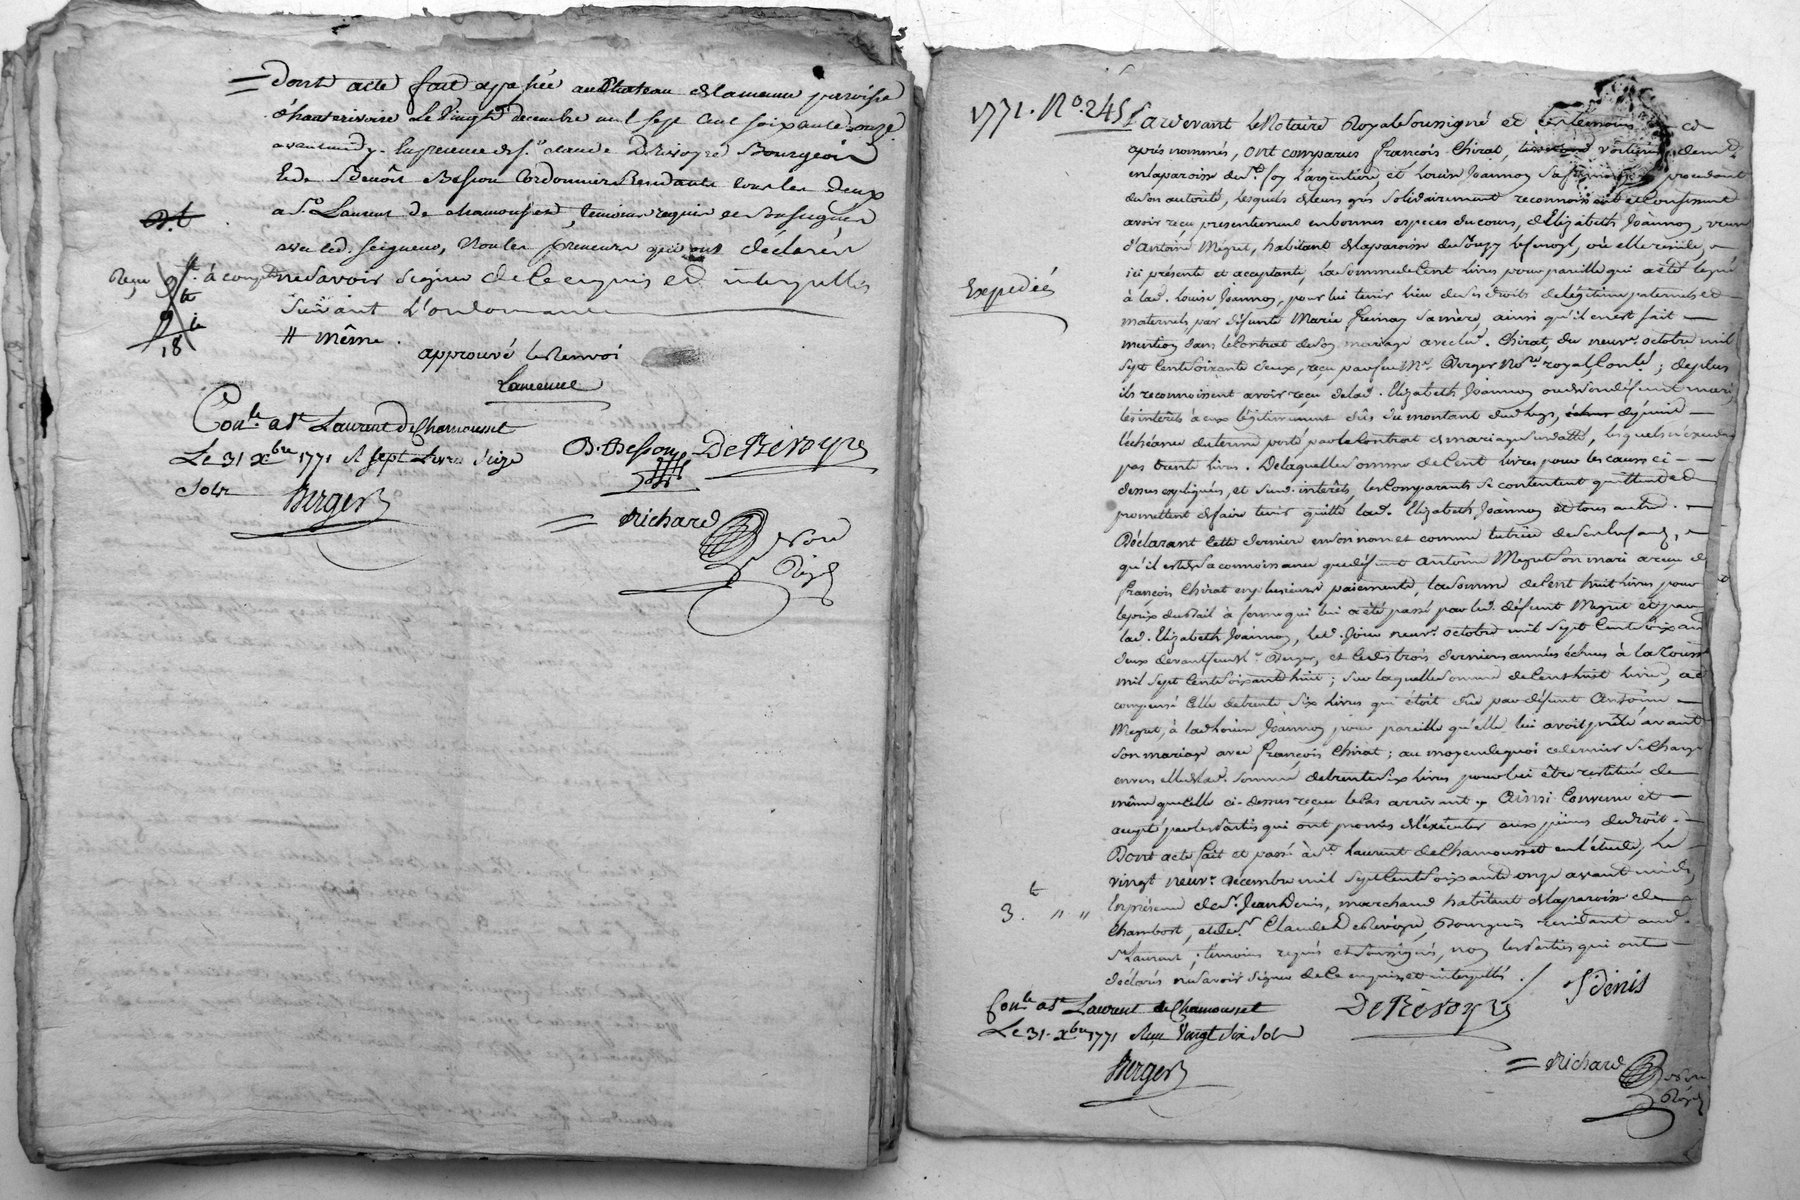 Dont acte fait et passé au Chateau de Lamenue paroisse
d'hauterivoire Le Vingt decembre mil sept cent soixante onze
avant midy. En presence de Sr. claude DeRivoyre Bourgeois
Et de Benoît Besson Cordonnier Residants tous les deux
a St. Laurent de chamousset, temoins requis et soussignés
avec led. seigneur, Non les preneurs qui ont déclarés
ne savoir signer de ce enquis et interpellés
suivant L'ordonnance
Reçu 9 à compte
9
18
" même .
approuvé le Renvoi
Lamenue
Conlé. a St Laurent De Chamousset
Le 31 Xbre 1771 R sept Livres Seize
Sols Berger
B. Besson DeRivoyre
Richard
Nore
Royal
1771. No. 245
Expediée
Pardevant le Notaire Royal Soussigné et les temoins
après nommés, ont comparus françois Chirat, voiturier, demt.
en la paroisse de Ste. foy L'argentiere, et Louise Joannon sa femme procedant
de son autorité, lesquels de leurs gré solidairement reconnoissent et confessent
avoir reçu presentement en bonnes especes du cours, d'Elizabeth Joannon, veuve
d'Antoine Megret, habitant de la paroisse de Souzy , où elle reside,
ici présente et acceptante, la somme de Cent livres pour pareille qui a été legué
à lad. Louise Joannon, pour lui tenir lieu de ses droits de légitime paternels et
maternels, par défunte Marie sa mère, ainsi qu'il en est fait
mention dans le Contrat de son mariage avec led. Chirat, du neuve. octobre mil
sept Cent Soixante deux, reçu par feu Me. Berger Nore. royal, ; de plus
ils reconnoissent avoir reçu de lad. Elizabeth Joannon ou de son défunt mari,
les intérêts à eux légitimement dûs du montant dud. legs,
l'échéance du terme porté par le Contrat de mariage susdatté, lesquels n'excedent
pas trente livres. De laquelle somme de Cent livres pour les causes ci
dessus expliqués, et sesd. intérêts, les comparants se contentent quittent et
promettent de faire tenir quitte lad. Elizabeth Joannon et tous autres.
Déclarant cette derniere en son nom et comme tutrice de ses enfants,
qu'il est de sa connoissance que défunt Antoine Megret son mari a reçu de
françois Chirat en plusieurs paiements, la somme de Cent huit livres pour
le prix du Bail à ferme qui lui a été passé par led. défunt Megret et par
lad. Elizabeth Joannon, led. jour neuve. octobre mil sept Cent soixante
deux devant feu Me. Berger, et ce des trois dernieres années échues à la Tousst.
mil sept Cent soixante huit ; sur laquelle somme de Cent huit livres, a été
compensé Celle de trente six livres qui étoit due par défunt Antoine
Megret, à lad. Louise Joannon pour pareille qu'elle lui avoit prêté avant
son mariage avec françois Chirat ; au moyen de quoi ce dernier se charge
envers elle de lad. somme de trente six livres pour lui être restituée de
même que Celle ci-dessus reçue le Cas arrivant. Ainsi Convenu et
accepté par les Parties qui ont promis de l'exécuter aux peines de droit.
Dont acte fait et passé à St. Laurent de Chamousset en l'étude, Le
vingt neuve. Décembre mil sept Cent soixante onze avant midi,
3. " "
En présence de Sr. Jean Denis, marchand habitant de la paroisse de
Chambost, et de Sr. Claude DeRivoyre, Bourgeois residant aud.
St Laurent ; temoins requis et soussignés, non les Parties qui ont
déclarés ne savoir signer de ce enquis et interpellés.
J. Denis
DeRivoyre
Conlé a St Laurent de Chamousset
Le 31. Xbre 1771 Reçu Vingt Six Sols
Berger
Richard
Nore
Royal